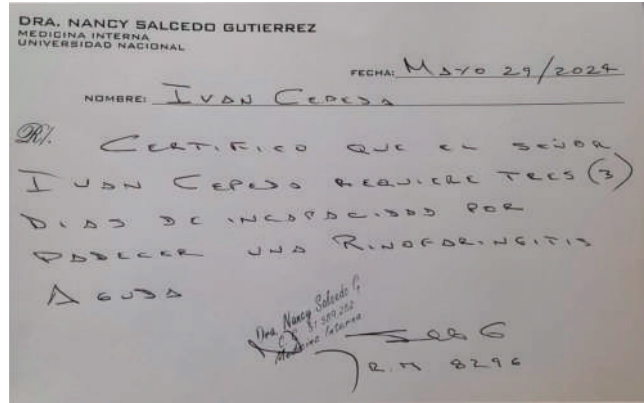 DRA. NANCY SALCEDO GUTIERREZ
MEDICINA INTERNA
UNIVERSIDAD NACIONAL
FECHA: MAYO 29/2024
NOMBRE: IVAN CEPEDA
R/. CERTIFICO QUE EL SEÑOR
IVAN CEPEDA REQUIERE TRES (3)
DIAS DE INCAPACIDAD POR
PADECER UNA RINOFARINGITIS
AGUDA
Dra. Nancy Salcedo G.
C.C. 51.589.252
Medicina Interna
R.M 8296